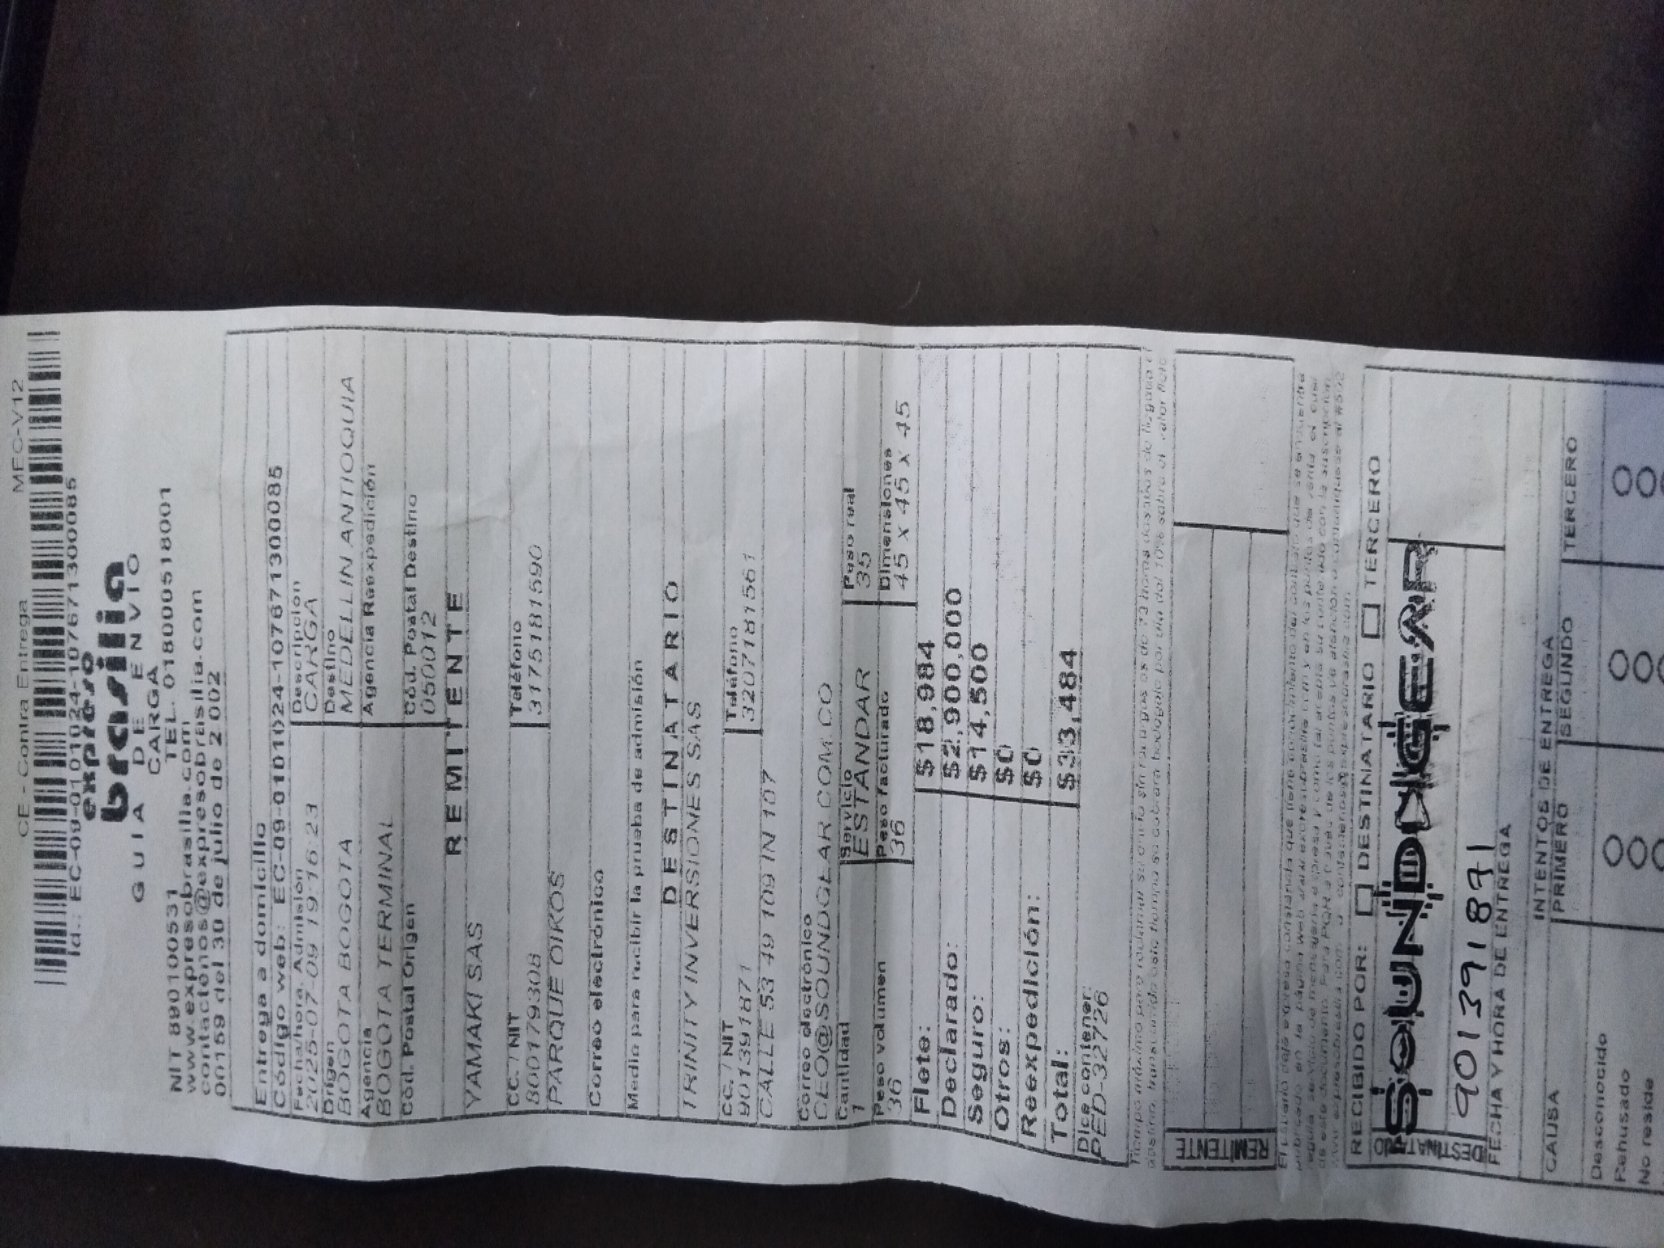 CE - Contra Entrega MFC-V12
Id.: EC-09-0101024-1076713000085
expreso
brasilia
GUIA DE ENVIO
CARGA
NIT 890100531 TEL. 018000518001
www.expresobrasilia.com
contactenos@expresobrasilia.com
00159 del 30 de julio de 2 002
Entrega a domicilio
Código web: EC-09-0101024-10767130000085
Fecha/hora. Admisión Descripción
2025-07-09 19:16:23 CARGA
Origen Destino
BOGOTA BOGOTA MEDELLIN ANTIOQUIA
Agencia Agencia Reexpedición
BOGOTA TERMINAL
Cód. Postal Origen Cód. Postal Destino
050012
REMITENTE
YAMAKI SAS
CC. / NIT Teléfono
800179308 3175181590
PARQUE OIKOS
Correo electrónico
Medio para recibir la prueba de admisión
DESTINATARIO
TRINITY INVERSIONES SAS
CC. / NIT Teléfono
901391871 3207181561
CALLE 53 49 109 IN 107
Correo electrónico
CEO@SOUNDGEAR.COM.CO
Cantidad Servicio Peso real
1 ESTANDAR 35
Peso volumen Peso facturado Dimensiones
36 36 45 x 45 x 45
Flete: $18,984
Declarado: $2,900,000
Seguro: $14,500
Otros: $0
Reexpedición: $0
Total: $33,484
Dice contener:
PED-32726
REMITENTE
RECIBIDO POR: DESTINATARIO TERCERO
SOUNDGEAR
901391871
DESTINATARIO
FECHA Y HORA DE ENTREGA
INTENTOS DE ENTREGA
CAUSA PRIMERO SEGUNDO TERCERO
Desconocido
Rehusado
No reside